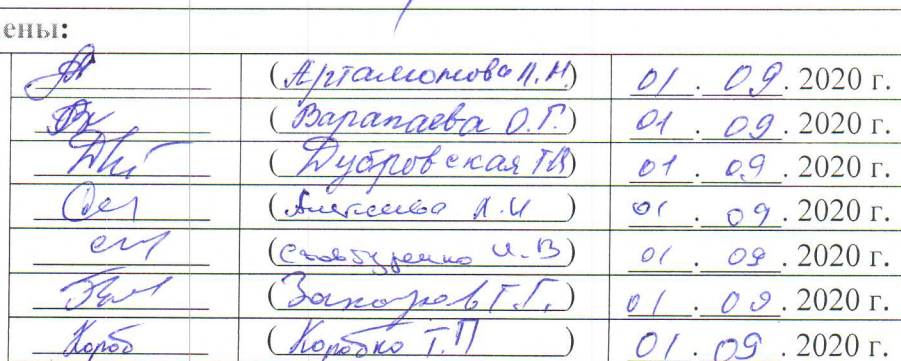 ены:
(Артамонова Л.Н.) 01 . 09 . 2020 г.
(Варапаева О.Г.) 01 . 09 . 2020 г.
(Дубровская Т.В) 01 . 09 . 2020 г.
(Алексеева Л.И) 01 . 09 . 2020 г.
(Столбуренко И.В) 01 . 09 . 2020 г.
(Захаров Т.Г.) 01 . 09 . 2020 г.
Короб (Коробко Т.П) 01 . 09 . 2020 г.